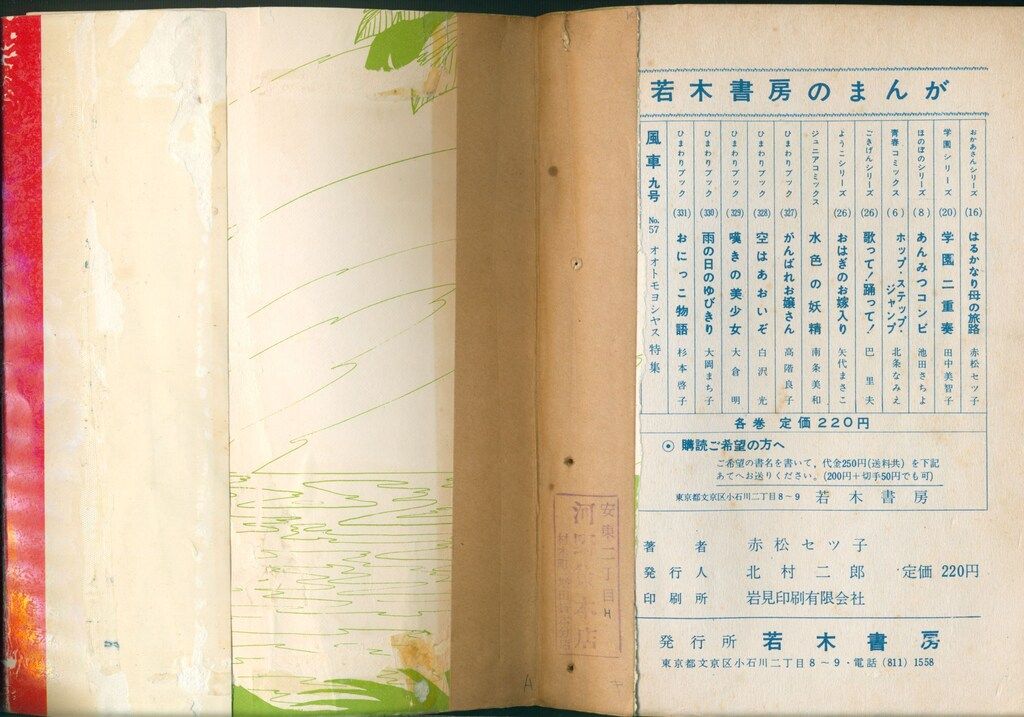 若木書房のまんが
おかあさんシリーズ (16) はるかなり母の旅路 赤松セツ子
学園シリーズ (20) 学園二重奏 田中美智子
ほのぼのシリーズ (8) あんみつコンビ 池田さちよ
青春コミックス (6) ホップ・ステップ・ジャンプ 北条なみえ
ごきげんシリーズ (26) 歌って!踊って! 巴里夫
ようこシリーズ (26) おはぎのお嫁入り 矢代まさこ
ジュニアコミックス 水色の妖精 南条美和
ひまわりブック (327) がんばれお嬢さん 高階良子
ひまわりブック (328) 空はあおいぞ 白沢光
ひまわりブック (329) 嘆きの美少女 大倉明
ひまわりブック (330) 雨の日のゆびきり 大岡まち子
ひまわりブック (331) おにっこ物語 杉本啓子
風車 九号 No.57 オオトモヨシヤス特集
各巻 定価220円
⦿ 購読ご希望の方へ
ご希望の書名を書いて、代金250円(送料共)を下記
あてへお送りください。(200円+切手50円でも可)
東京都文京区小石川二丁目8~9 若木書房
著者 赤松セツ子
発行人 北村二郎 定価 220円
印刷所 岩見印刷有限会社
発行所 若木書房
東京都文京区小石川二丁目8~9・電話(811)1558
安東二丁目
H
A